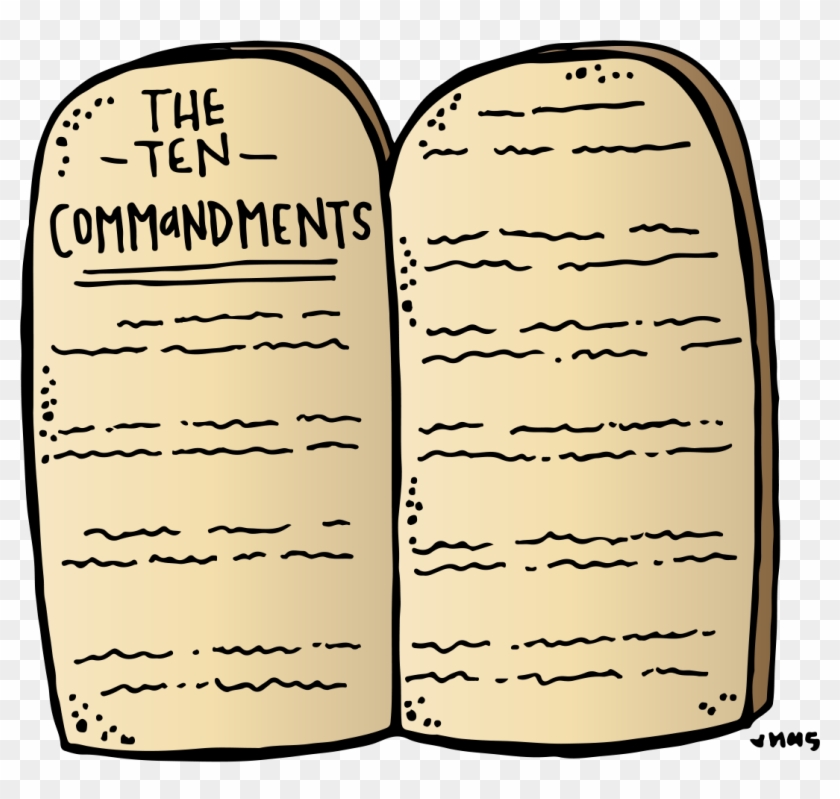 THE
-TEN-
COMMaNDMENTS